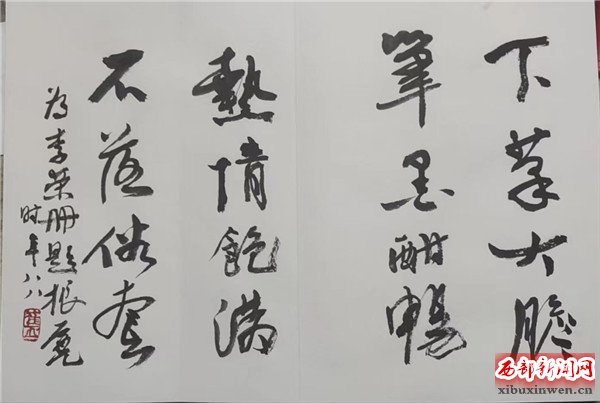 下笔大胆
筆墨酣暢
熱情飽滿
不落俗套
为李荣册题振寛
时年八八
西部新闻网
xibuxinwen.cn